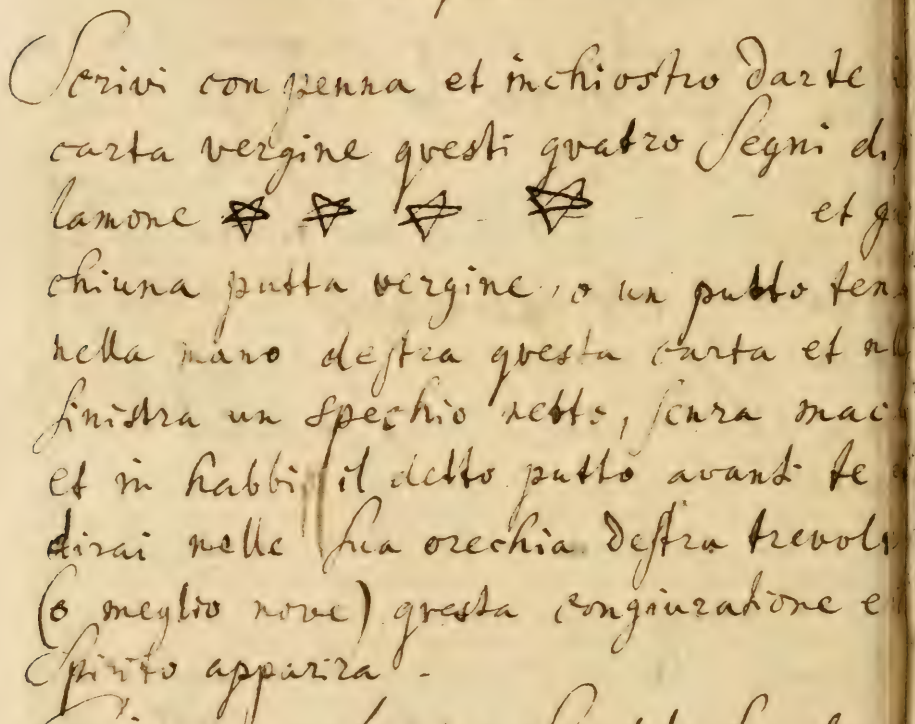 Scrivi con penna et inchiostro darte
carta vergine questi quatro Segni di
lamone et
chiuna putta vergine, o un putto ten
nella mano destra questa carta et
sinistra un spechio netto, senza mac
et in habbi il detto putto avanti te
dirai nelle sua orechia destra trevol
(o meglio nove) questa congiuratione e
Spirito apparira.